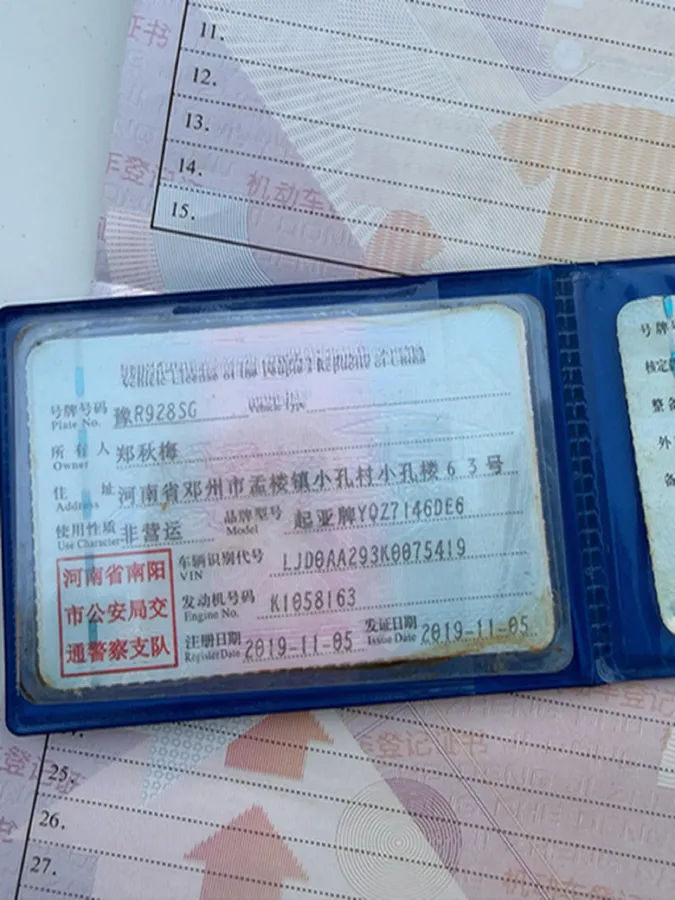 证书
11.
12.
13.
车登记
14.
机动车登
15.
Vehicle License of the People's Republic of China
号牌号码 豫R928SG Vehicle Type
Plate No.
所有人 郑秋梅
Owner
住址 河南省邓州市孟楼镇小孔村小孔楼63号
Address
使用性质 非营运 品牌型号 起亚牌YQZ7146DE6
Use Character Model
河南省南阳
市公安局交
通警察支队
车辆识别代号 LJD0AA293K0075419
VIN
发动机号码 K1058163
Engine No.
注册日期 2019-11-05 发证日期 2019-11-05
Register Date Issue Date
号牌号
核定
整备
外
登记证书
登记证
25.
26.
27.
机动车登记证